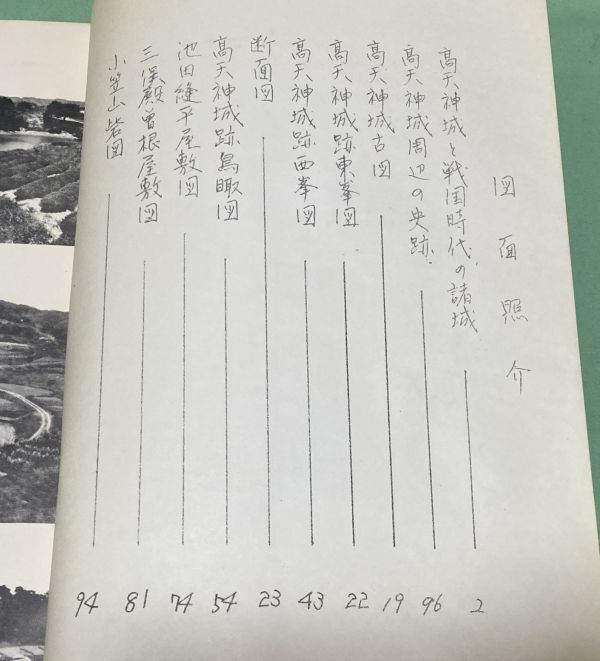 図面照介
高天神城と戦国時代の諸城 2
高天神城周辺の史跡 96
高天神城古図 19
高天神城跡東峯図 22
高天神城跡西峯図 43
断面図 23
高天神城跡鳥瞰図 54
池田縫平屋敷図 74
三俣殿曽根屋敷図 81
小笠山砦図 94